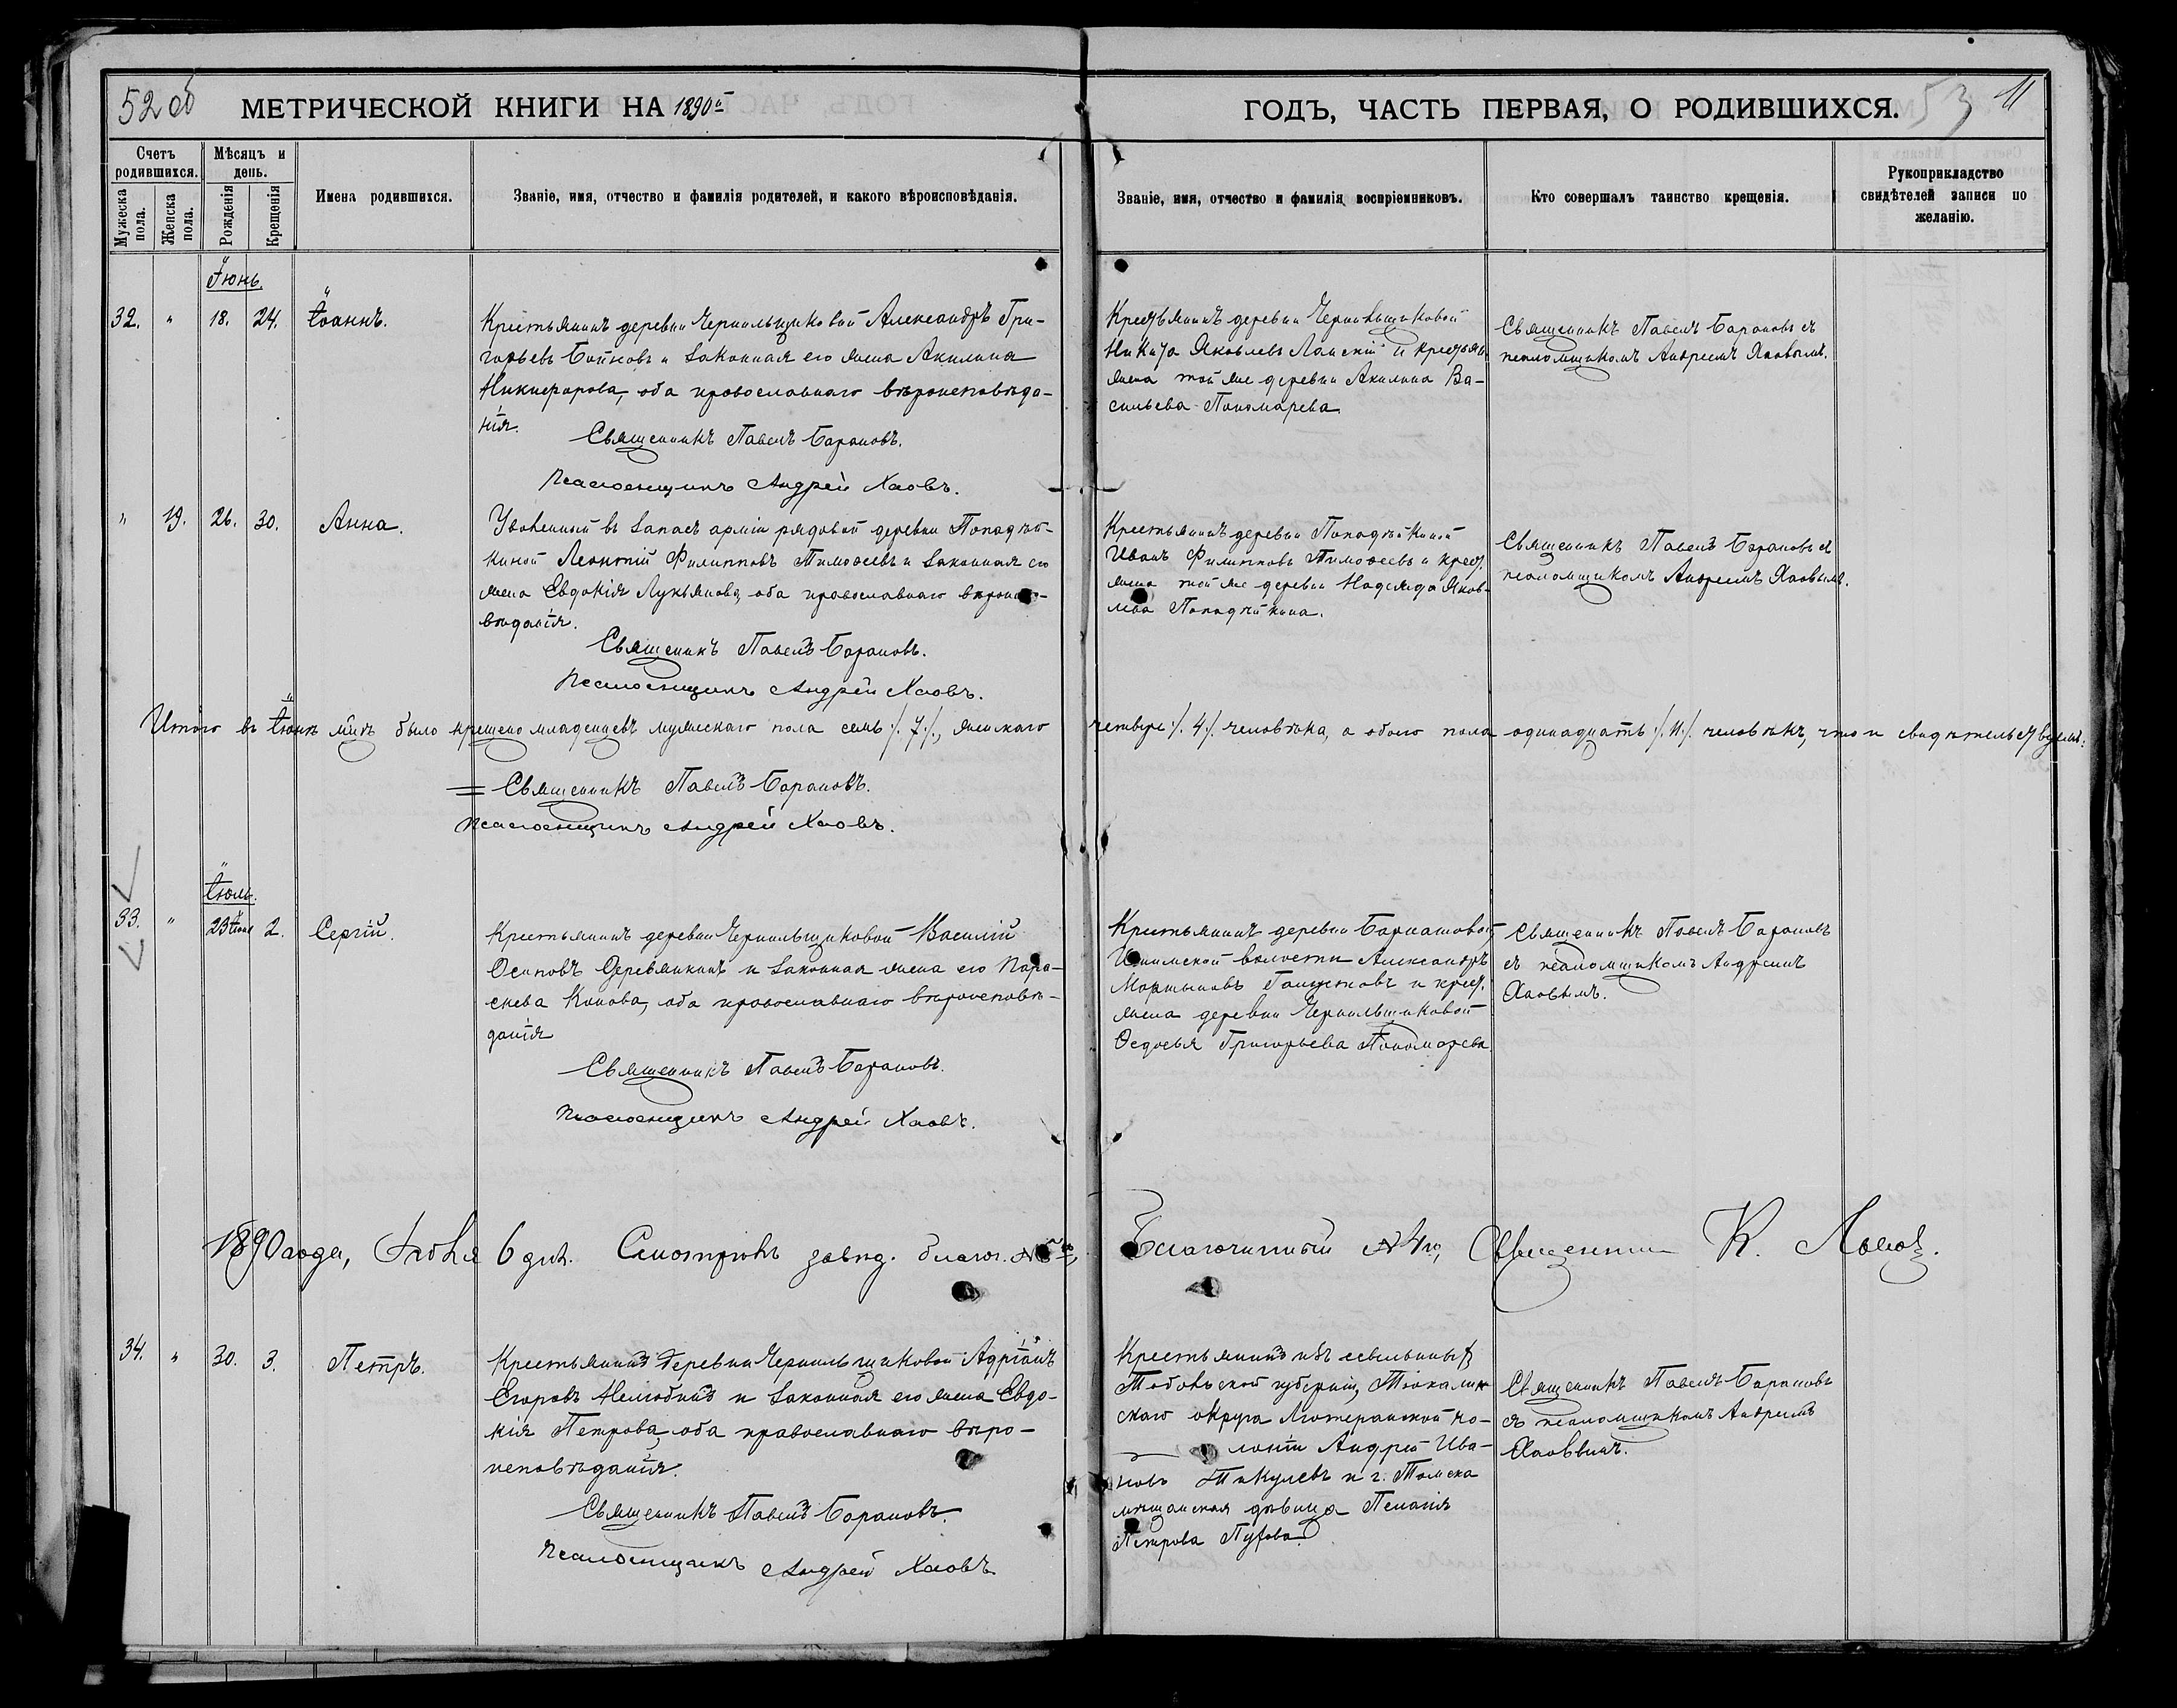 52 об
МЕТРИЧЕСКОЙ КНИГИ НА 1890й
ГОДЪ, ЧАСТЬ ПЕРВАЯ, О РОДИВШИХСЯ.
53
11
Счетъ родившихся.
Мужеска пола.
Женска пола.
Мѣсяцъ и день.
Рожденія
Крещенія
Имена родившихся.
Званіе, имя, отчество и фамилія родителей, и какого вѣроисповѣданія.
Званіе, имя, отчество и фамилія воспріемниковъ.
Кто совершалъ таинство крещенія.
Рукоприкладство
свидѣтелей записи по
желанію.
Іюнь.
32. " 18. 24. Іоаннъ.
Крестьянинъ деревни Чернильщиковой Александръ Гри-
горьевъ Бойковъ и законная его жена Акилина
Никифорова, оба православнаго вѣроисповѣда-
нія.
Священникъ Павелъ Барановъ.
Псаломщикъ Андрей Хаовъ.
Крестьянинъ деревни Чернильщиковой
Никита Яковлевъ Ланскій и крестьян.
жена той же деревни Акилина Ва-
сильева Пономарева
Священникъ Павелъ Барановъ съ
псаломщикомъ Андреемъ Хаовымъ.
" 19. 26. 30. Анна.
Уволенный въ запасъ арміи рядовой деревни Попадѣй-
киной Леонтій Филипповъ Тимоѳеевъ и законная его
жена Евдокія Лукьянова, оба православнаго вѣроиспо-
вѣданія.
Священникъ Павелъ Барановъ.
Псаломщикъ Андрей Хаовъ.
Крестьянинъ деревни Попадѣйкиной
Иванъ Филипповъ Тимоѳеевъ и крест.
жена той же деревни Надежда Яков-
лева Попадѣйкина.
Священникъ Павелъ Барановъ съ
псаломщикомъ Андреемъ Хаовымъ.
Итого въ Іюнѣ м̃цѣ было крещено младенцевъ мужескаго пола семь /.7./, женскаго четыре /.4./ человѣка, а обоего пола одинадцать /.11./ человѣкъ, что и свидѣтельствуемъ:
Священникъ Павелъ Барановъ.
Псаломщикъ Андрей Хаовъ.
Іюль.
33. " 23 Іюня 2. Сергій.
Крестьянинъ деревни Чернильщиковой Василій
Осиповъ Деревянкинъ и законная жена его Пара-
скева Конова, оба православнаго вѣроисповѣ-
данія
Священникъ Павелъ Барановъ.
Псаломщикъ Андрей Хаовъ.
Крестьянинъ деревни Барнашовой,
Ишимской волости Александръ
Мартыновъ и крест.
жена деревни Чернильщиковой
Ѳедосья Григорьева Пономарева
Священникъ Павелъ Барановъ
съ псаломщикомъ Андреемъ
Хаовымъ.
1890 года, 6 дня. Смотрѣлъ завѣд. благоч. №
Благочинной № 4го, Священникъ К.
34. " 30. 3. Петръ.
Крестьянинъ деревни Чернильщиковой Адріанъ
Егоровъ Нелюбинъ и законная его жена Евдо-
кія Петрова, оба православнаго вѣро-
исповѣданія.
Священникъ Павелъ Барановъ.
Псаломщикъ Андрей Хаовъ
Крестьянинъ изъ ссыльныхъ
Тобольской губерніи, Тюкалин
скаго округа Лютеранской ко-
лоніи Андрей Ива-
новъ и г. Томска
мѣщанская дѣвица Пелагія
Петрова
Священникъ Павелъ Барановъ
съ псаломщикомъ Андреемъ
Хаовымъ.